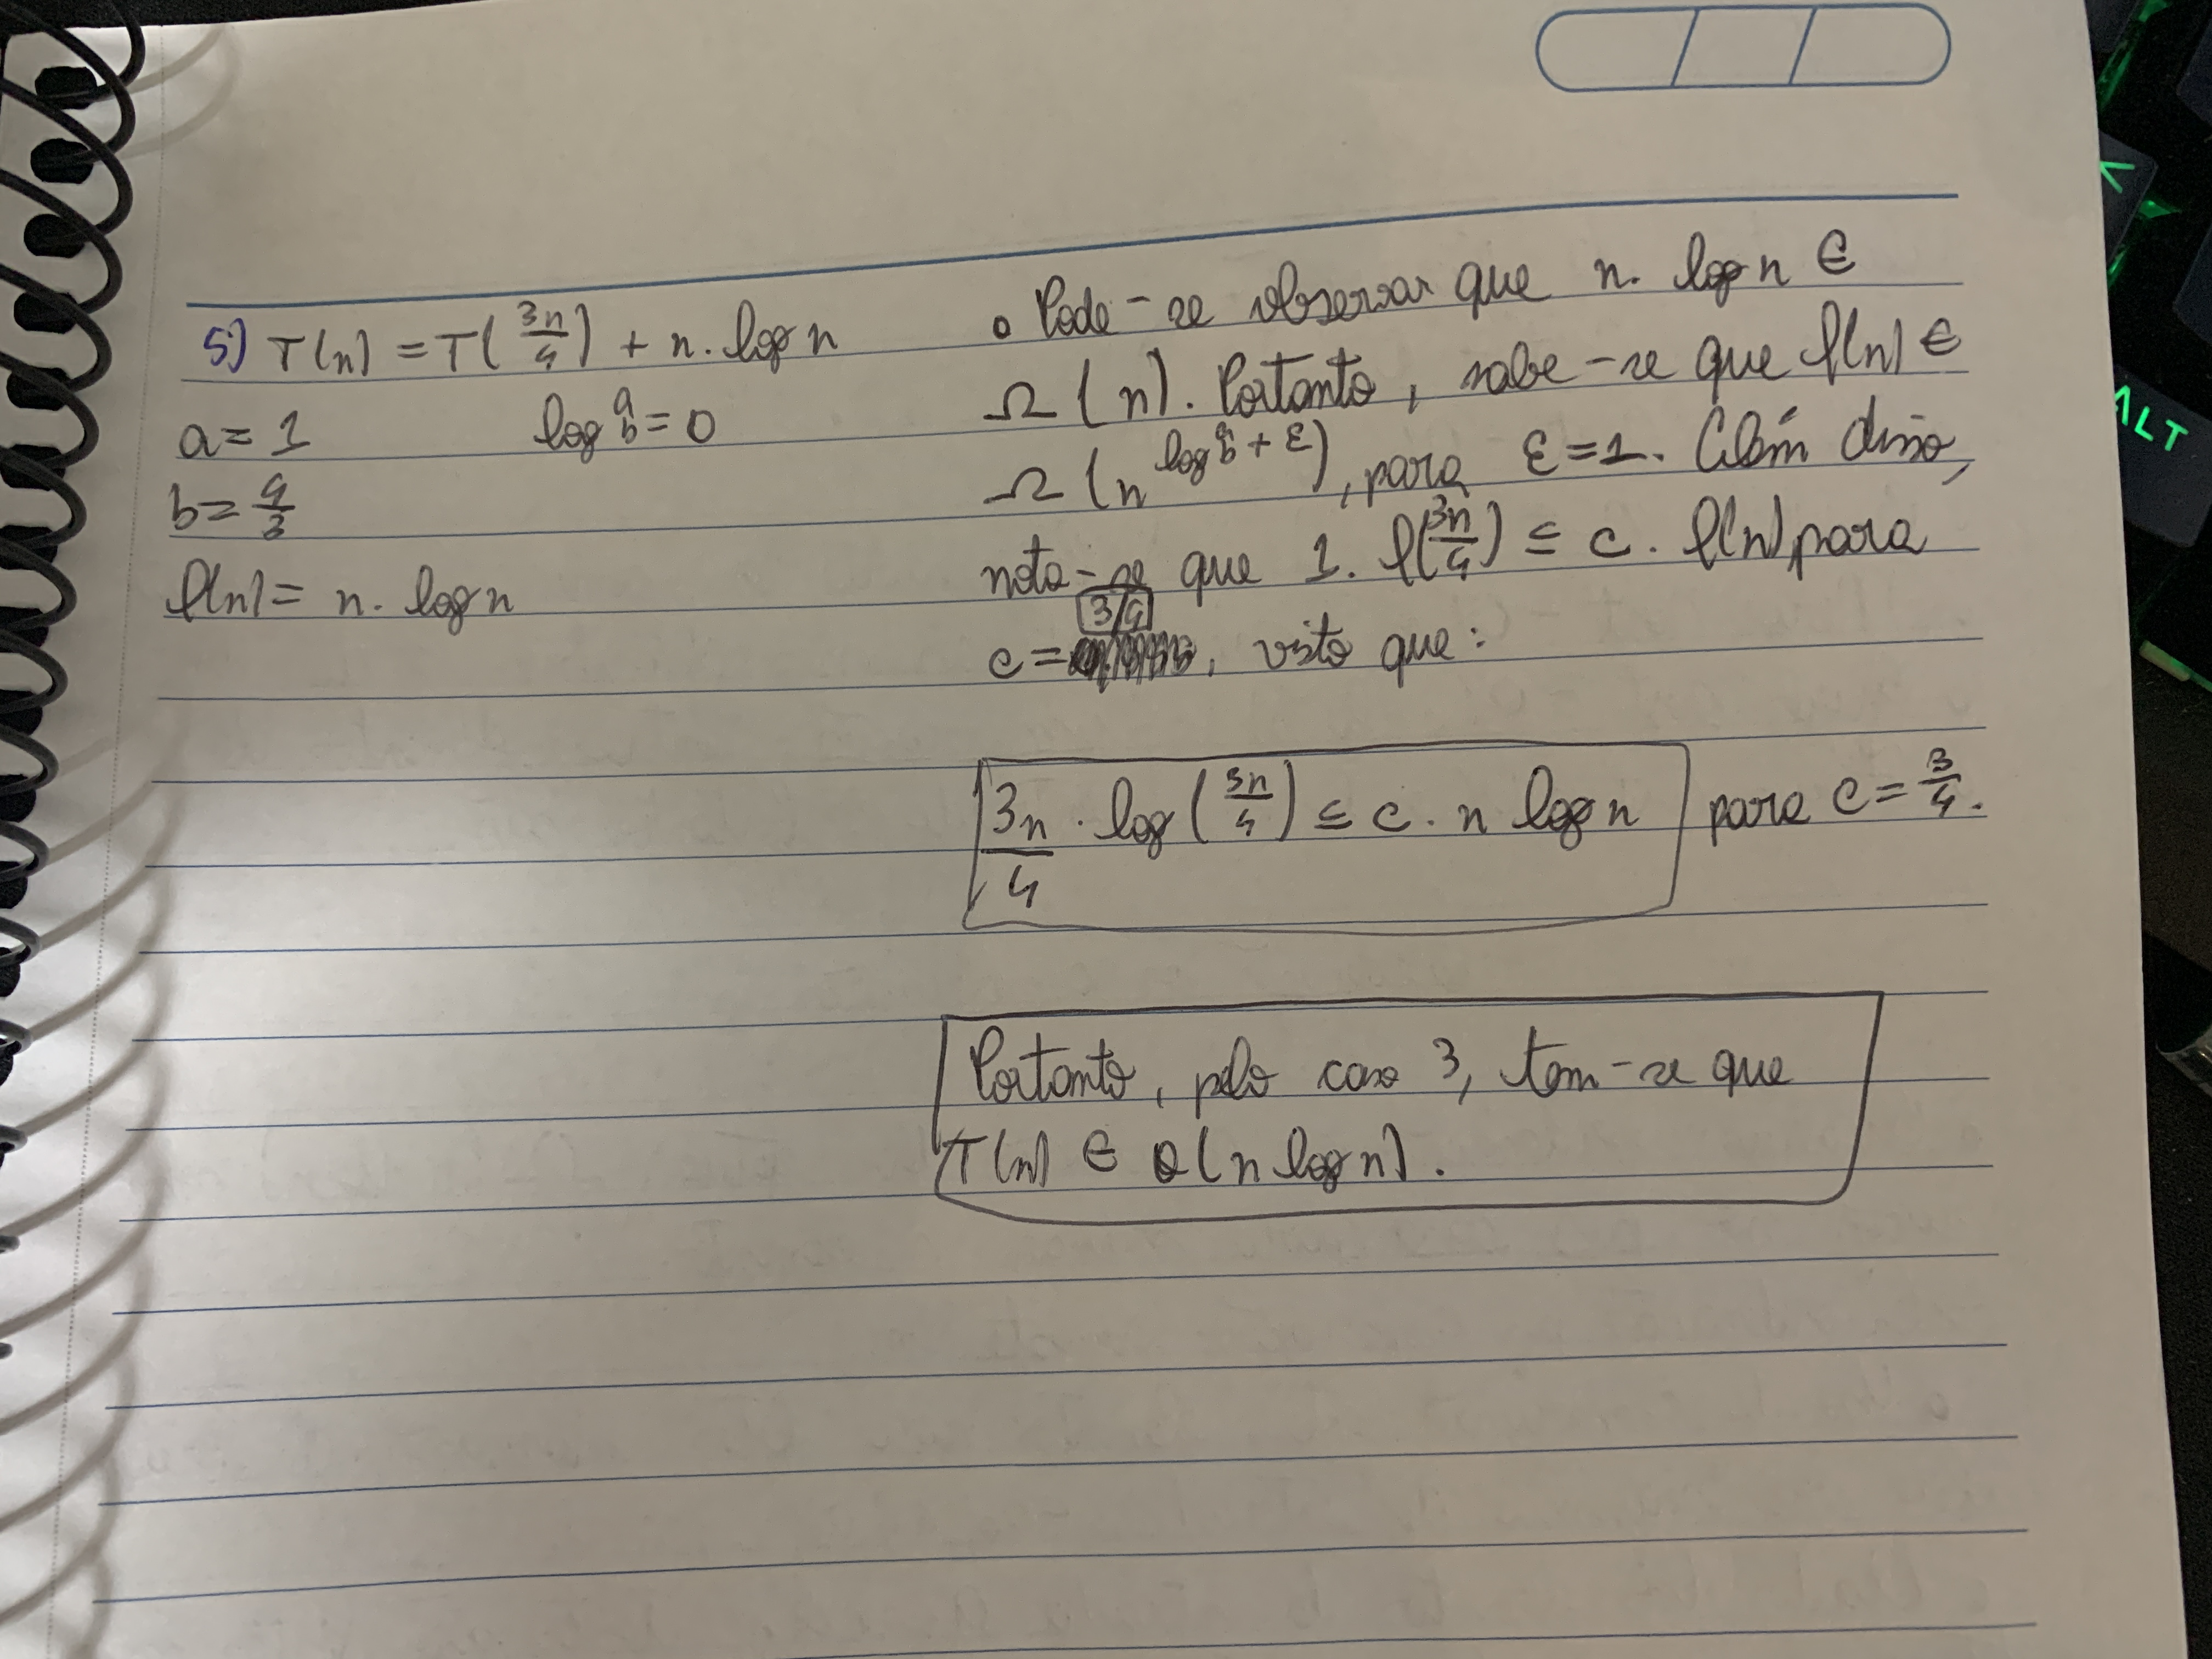 5) T(n) = T(3n/4) + n. log n
a = 1 log_b^a = 0
b = 4/3
f(n) = n. log n
• Pode-se observar que n. log n ∈
Ω(n). Portanto, sabe-se que f(n) ∈
Ω(n^(log_b^a + ε)), para ε = 1. Além disso,
nota-se que 1. f(3n/4) ≤ c. f(n) para
3/4
c = , visto que:
3n/4 . log(3n/4) ≤ c. n log n para c = 3/4.
Portanto, pelo caso 3, tem-se que
T(n) ∈ θ(n log n).
ALT